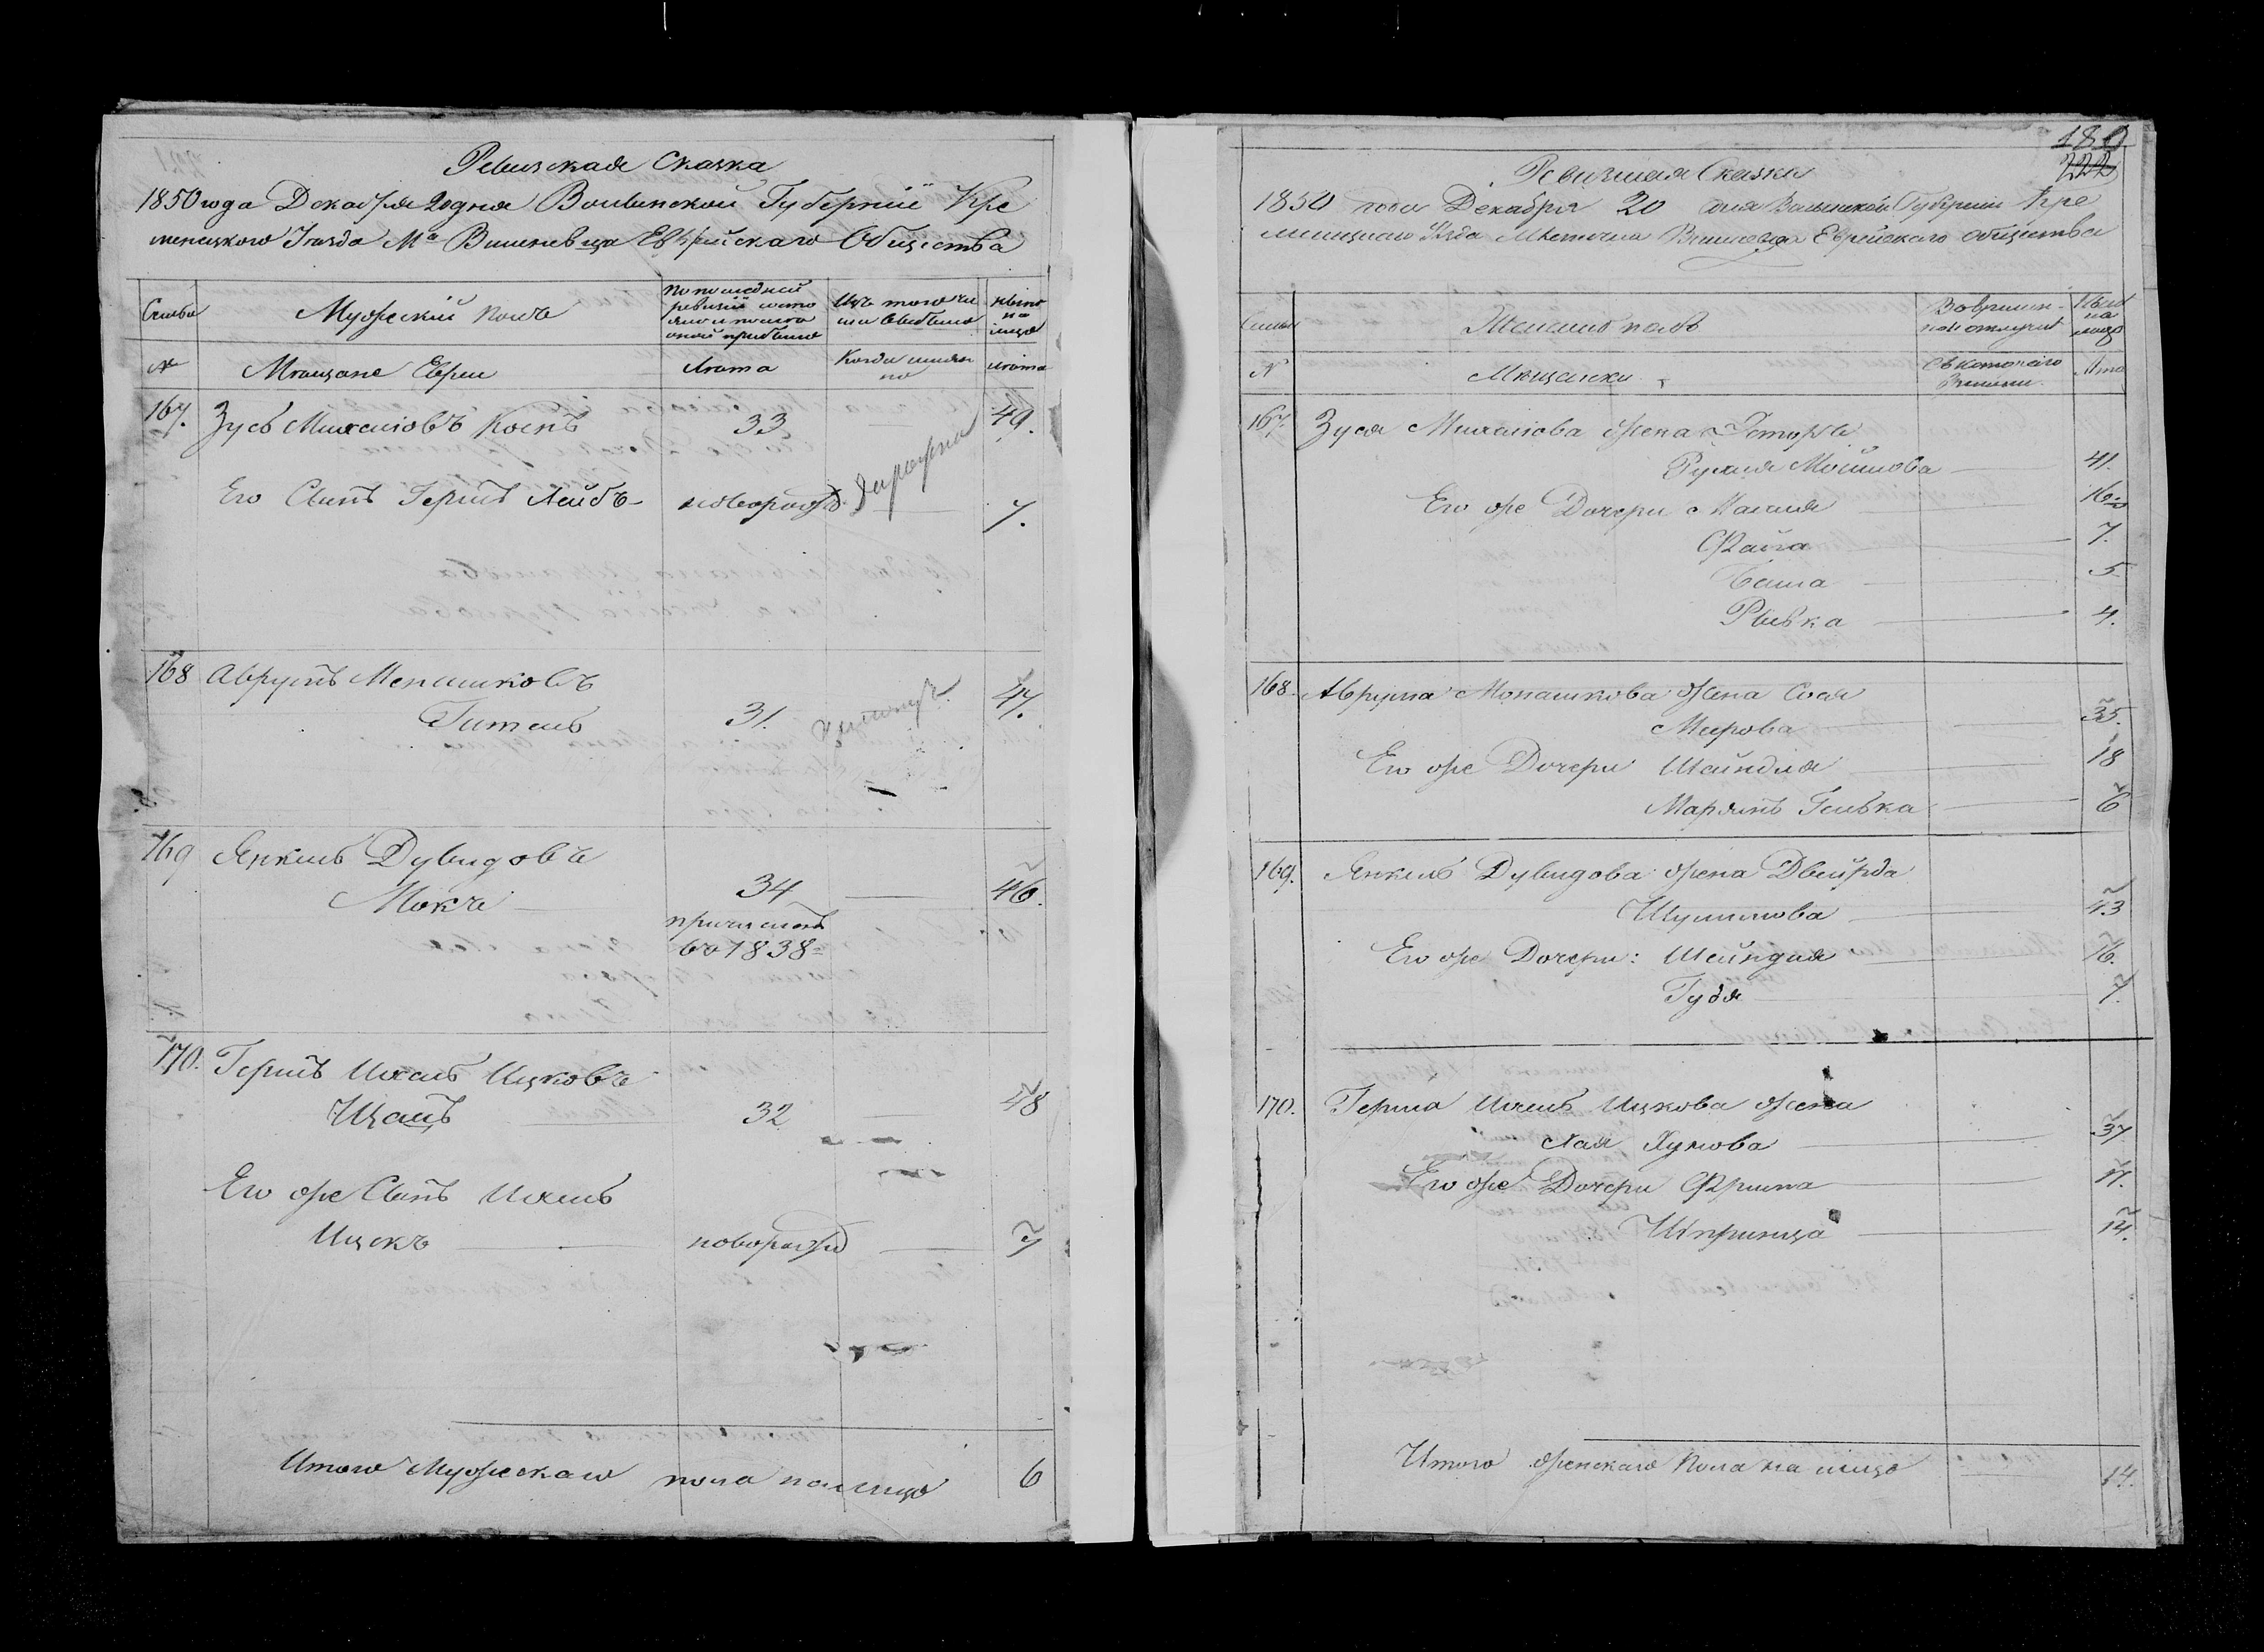 Ревизская Сказка
1850 года Декабря 20 дня Волынской Губернiи Кре
менецкого Уѣзда Мᵃ Вишневца Еврейскаго Общества
Семьи
Мужескiй полъ
По последней
ревизiи состо
яло и после
оной прибыло
Изъ того чи
сла выбыло
Ныне
на
лицо
№
Мѣщане Евреи
Лѣта
Когда имян
но
Лѣта
167. Зусь Михелiовъ Коенъ 33 49.
Его Сынъ Гершъ Лейбъ новорожд. 7.
168 Аврумъ Менашковъ
Гительъ 31. 47.
169 Янкель Дувидовъ
Мокъ 34 46.
причисленъ
въ 1838
170. Гершъ Ихель Ицковъ
Щацъ 32 48
Его же Сынъ Ихель
Ицекъ новорожд 7
Итого Мужескаго пола налицо 6
180
222
Ревизская Сказка
1850 года Декабря 20 дня Волынской Губернiи Кре
менецкаго Уѣзда Мѣстечка Вишневца Еврейскаго общества
Семьи
Женскiй полъ
Во времен-
ной отлучке
Ныне
на
лицо
№
Мѣщанки
Съ котораго
времени
Лѣта
167. Зуся Михелiова жена Эстеръ
Рухля Мошкова 41.
Его же Дочери Малия 16
Файга 7.
Хаша 5
Ривка 4.
168. Аврума Монашкова жена Сося
Меерова 35.
Его же Дочери Шейндля 18
Марьямъ Гелька 6
169. Янкель Дувидова жена Двейра
Шулимова 43
Его же Дочери: Шейндля 16.
Гудя 7.
170. Герша Ихель Ицкова жена
Хая Хунова 37
Его же Дочери Фрима 17.
Шпринца 14.
Итого женскаго пола на лицо 14.